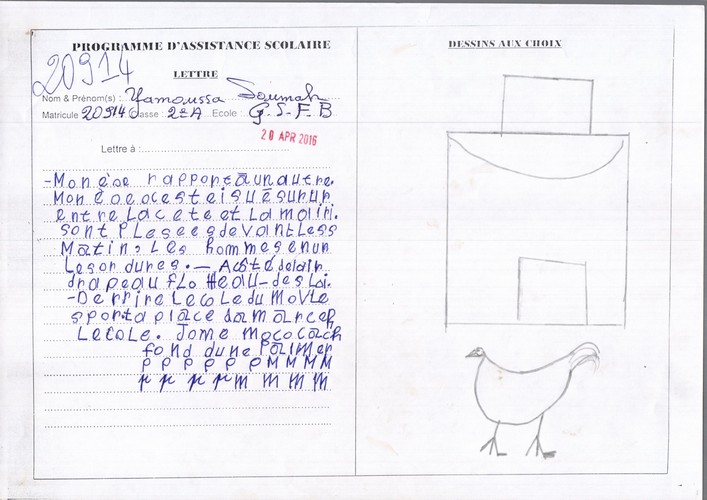 PROGRAMME D'ASSISTANCE SCOLAIRE
20914
LETTRE
Nom & Prénom(s) : Yamoussa Soumah
Matricule 20914 Classe : 2e A Ecole : G.S.F.B
20 APR 2016
Lettre à :
-Mon èse rapportāunautre.
Mon
entre Lacete et La mairi.
sont PLseesdevantLess
Matin: Les hommesenun
Leson dures. — Acôtédelair
drapeau flotteau-desLai.
-Derrire Lecole du movle
sporta place damārceh
Lecole. Jome mococāch
fond dune Pāimer
p p p p p p M M M M
p p p p m m m m m
DESSINS AUX CHOIX